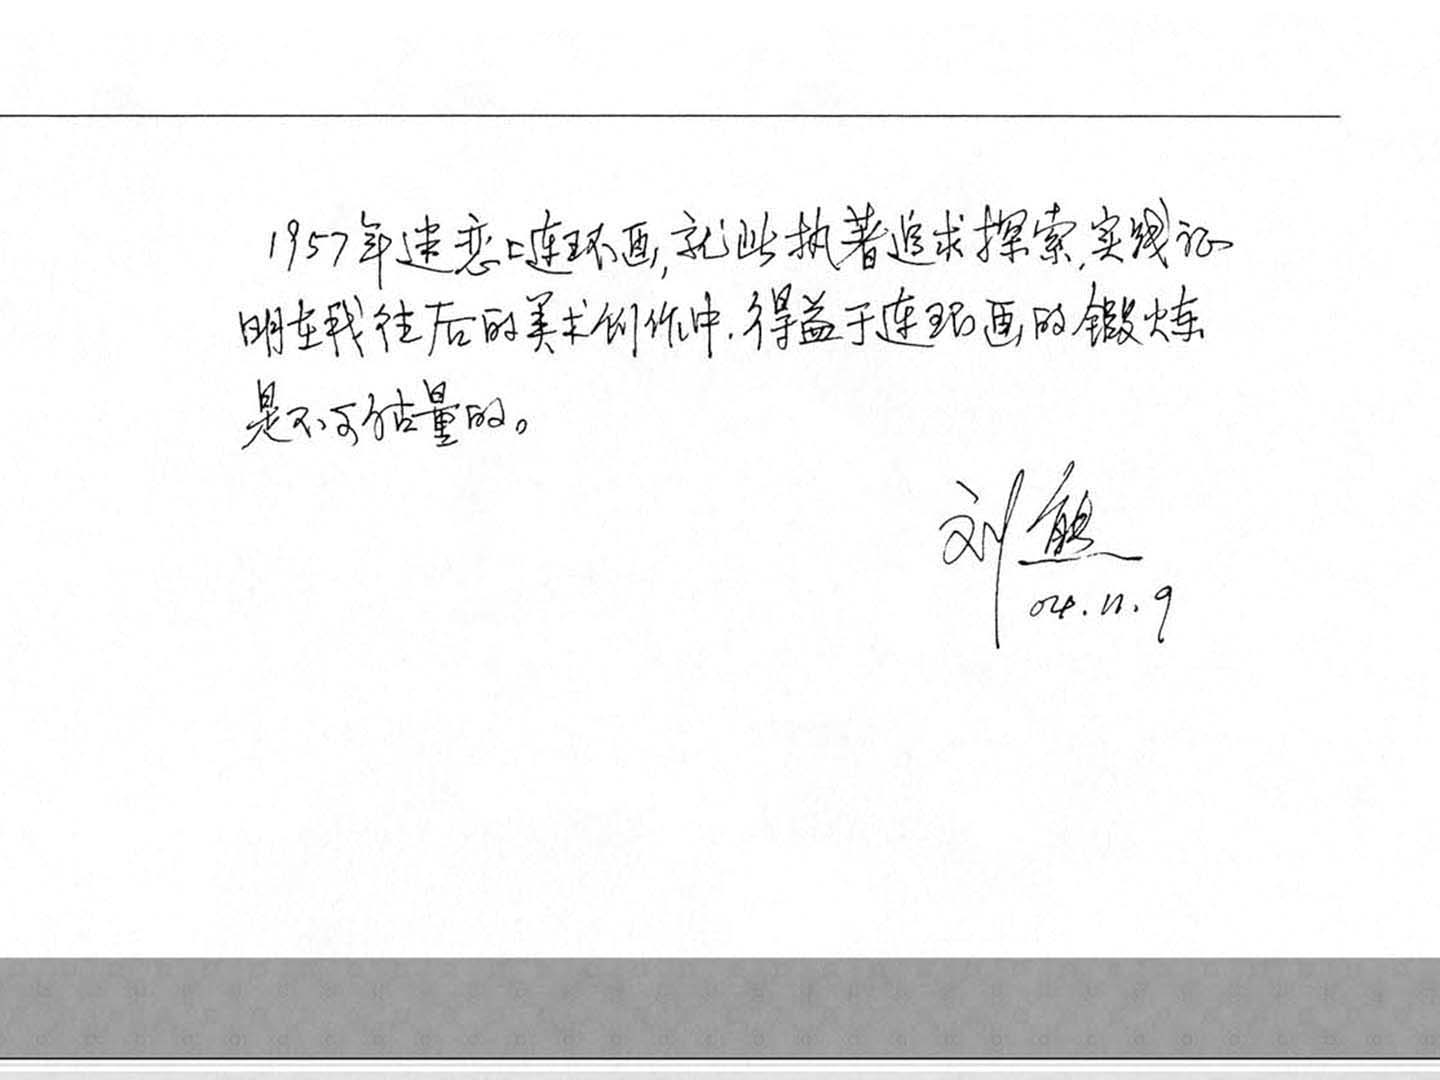 1957年迷恋上连环画,就此执著追求探索,实践证
明在我往后的美术创作中.得益于连环画的锻炼
是不可估量的。
刘熊
04.11.9